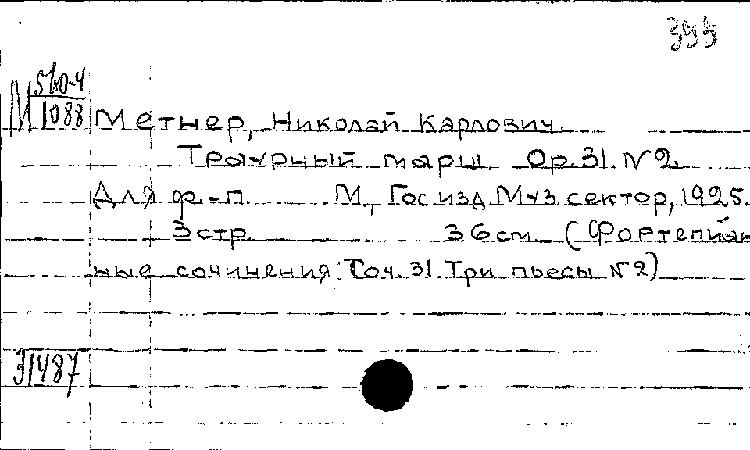 395
М 560-4
1088
Метнер, Николай Карлович
Траурный марш. Op. 31. №2.
Для ф.-п М., Госизд Муз сектор, 1925.
3 стр. 36 см (Фортепиан
ные сочинения: Соч. 31. Три пьесы №2)
31487